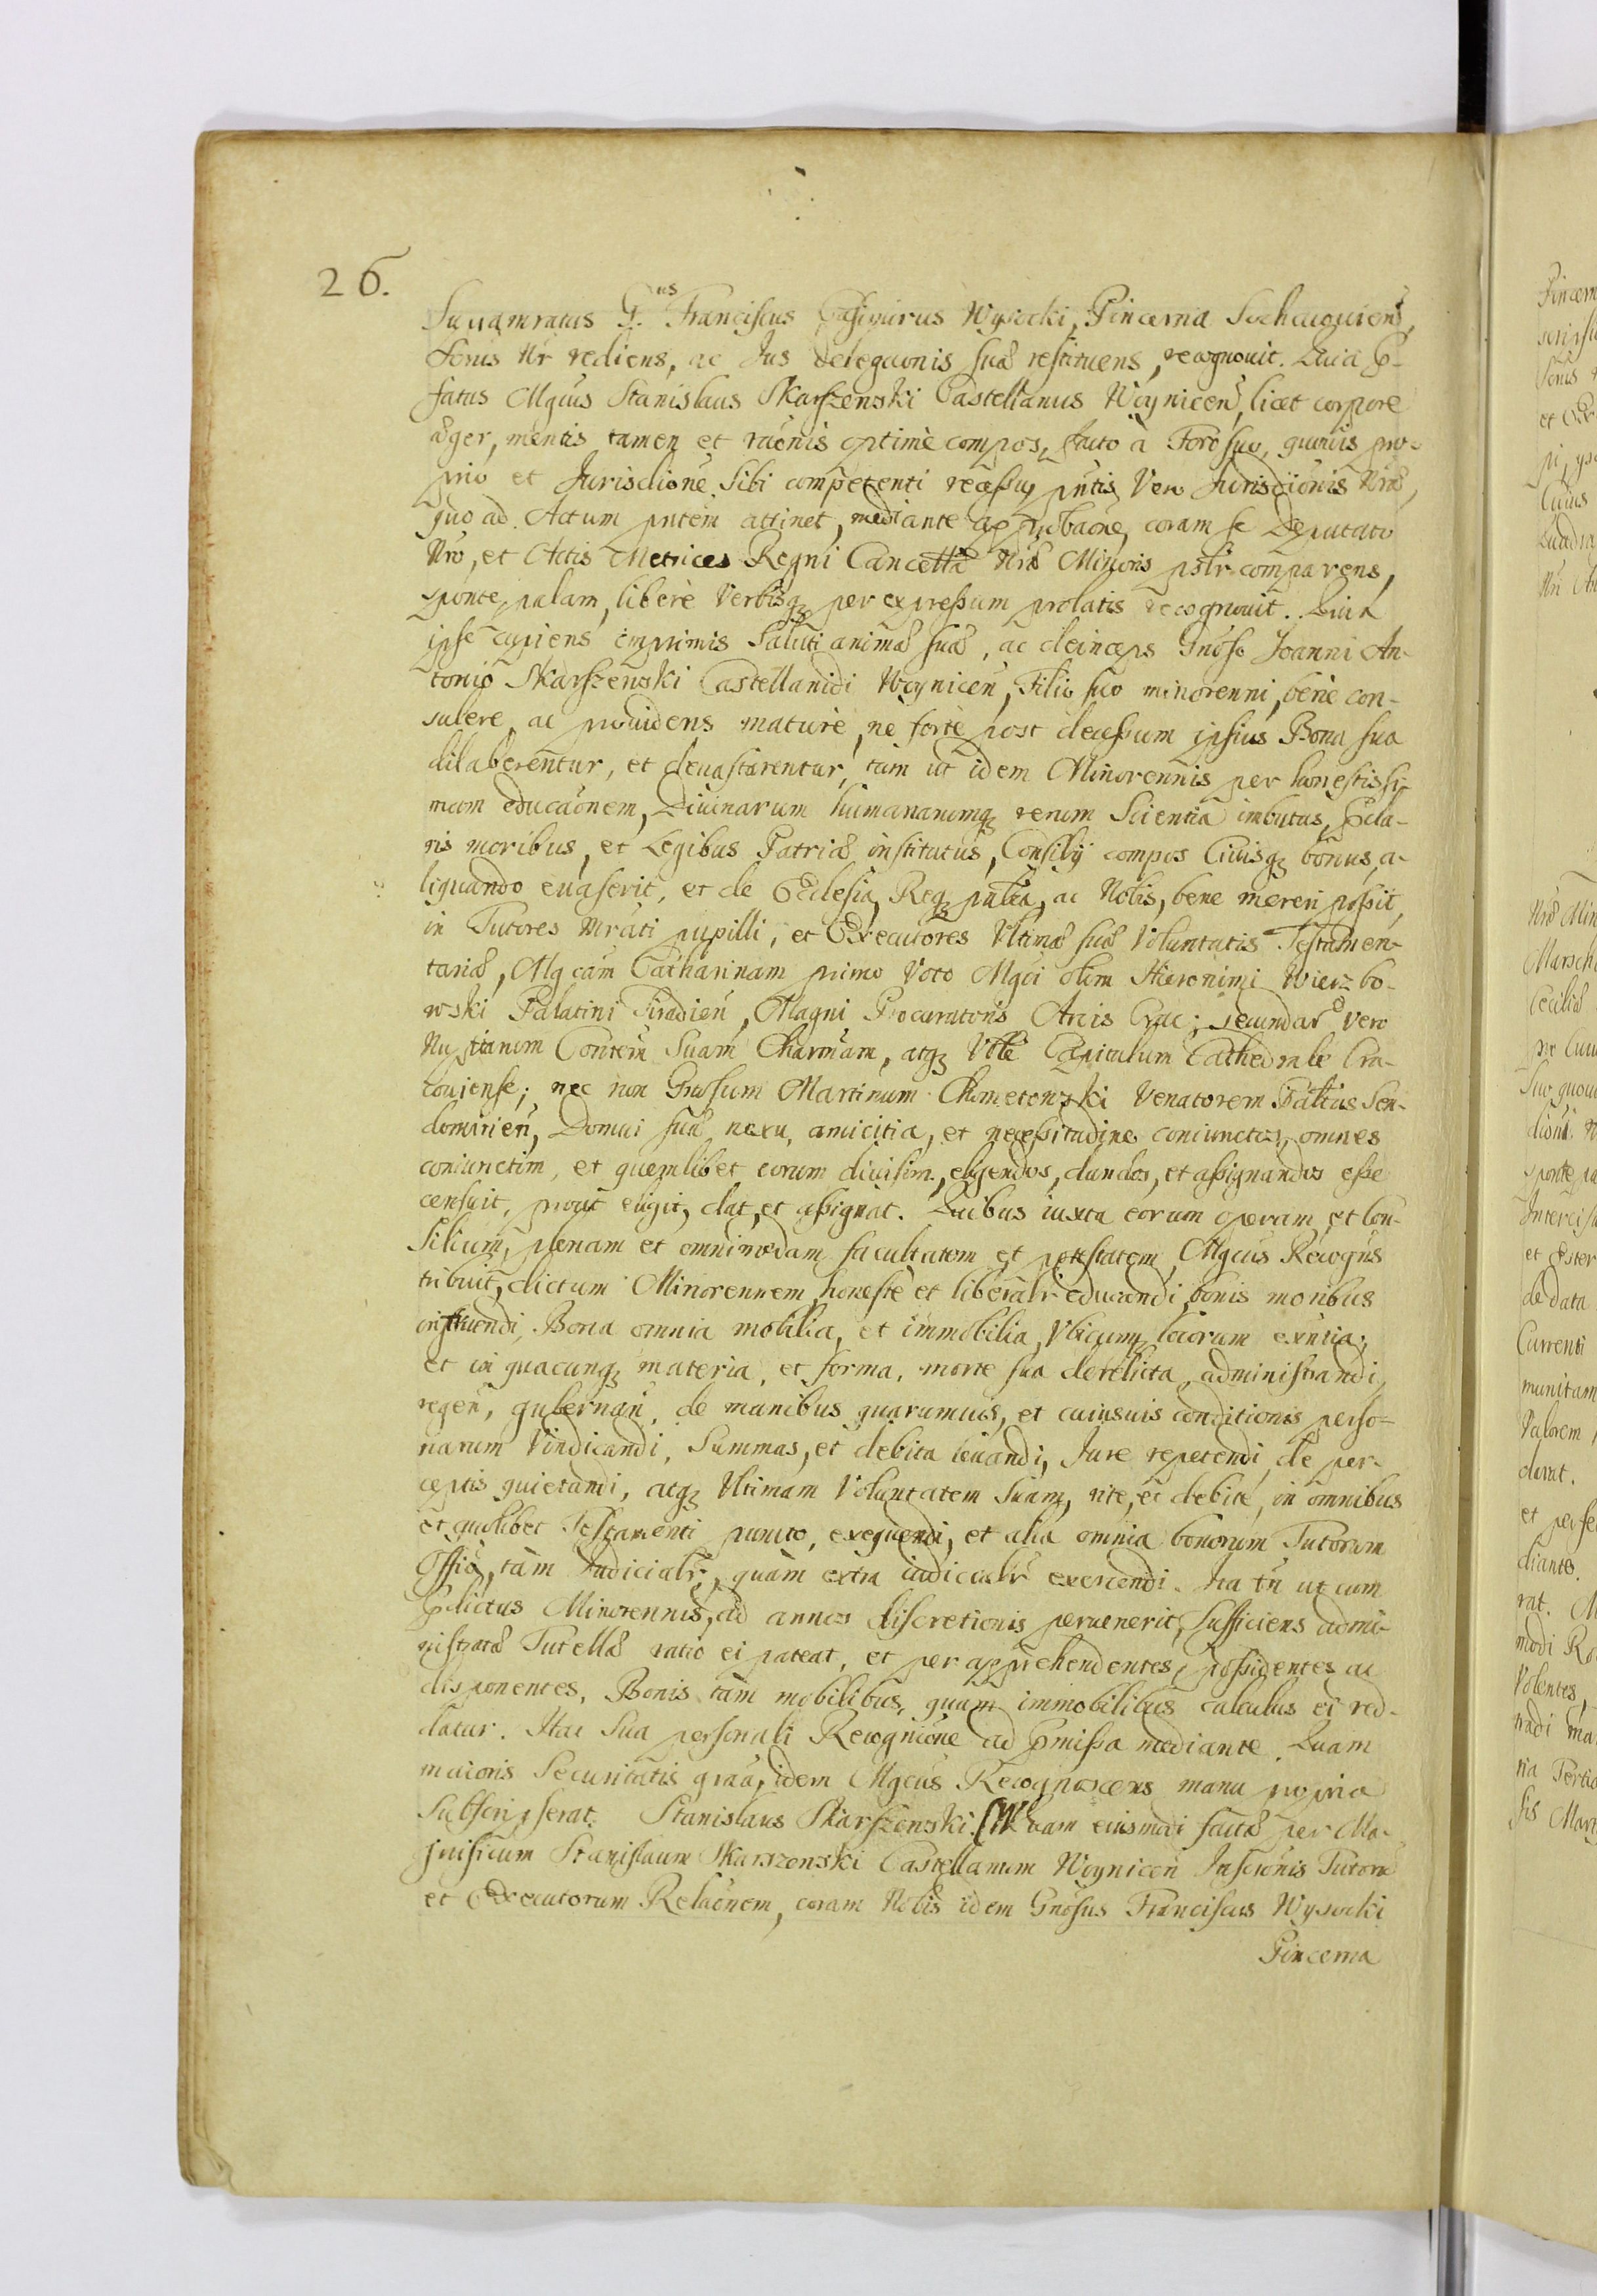 26.
Supramratus G.ns Franciscus Casimirus Wysocki, Pincerna Sochacouien,
Senis Nr rediens, ac Jus delegaonis suæ restituens, recognouit. Quia P-
fatus Mgcus Stanislaus Skarszenski Castellanus Woynicen, licet corpore
æger, mentis tamen et raonis optimè compos, facto à Foro suo, quouis pro-
prio et Jurisdione Sibi competenti recessu, pntis Vero Jurisdionis Nræ,
quo ad Actum pntem attinet, mediante approbaone, coram se Deputato
Nro, et Actis Metrices Regni Cancellæ Nræ Minoris pslr comparens,
sponte, palam, liberè Verbisq per expressum prolatis recognouit. Quia
ipse cupiens imprimis Saluti animæ suæ, ac deinceps Gnoso Joanni An-
tonio Skarszenski Castellanidi Woynicen, Filio suo minorenni, benè con-
sulere, ac prouidens maturè, ne fortè post decessum ipsius Bona sua
dilaberentur, et deuastarentur, tum ut idem Minorennis per honestissi-
mam educaonem, Diuinarum humanarumq rerum Scientia imbutus, Pcla-
ris moribus, et Legibus Patriæ institutus, Consilij compos Ciuisq bonus, a-
liquando euaserit, et de Ecclesia, Req publca, ac Nobis, bene mereri possit,
in Tutores mrati pupilli, et Executores Vltimæ suæ Voluntatis Testamen-
tariæ, Mgcam Catharinam primo Voto Mgci olim Hieronimi Wierzbo-
wski Palatini Siradien, Magni Procuratoris Arcis Crac; secundar Vero
Nuptiarum Contem Suam Charmam, atq Vble Capitulum Cathedrale Cra-
couiense; nec non Gnosum Martinum Chometowski Venatorem Paltus Sen-
domirien, Domui suæ nexu, amicitia, et necessitudine coniunctos, omnes
coniunctim, et quemlibet eorum diuisim, eligendos, dandos, et assignandos esse
censuit, prout eligit, dat, et assignat. Quibus iuxta eorum operam et Con-
silium, plenam et omnimodam facultatem et potestatem Mgcus Recogns
tribuit, dictum Minorennem honestè et liberalr educandi, bonis moribus
instruendi, Bona omnia mobilia, et immobilia, Vbicunq locorum exntia,
et in quacunq materia, et forma, morte sua derelicta, administrandi,
regen, gubernan, de manibus quarumuis, et cuiusuis conditionis perso-
narum Vindicandi, Summas, et debita leuandi, Jure repetendi, de per-
ceptis quietandi, atq Vltimam Voluntatem Suam, rite, et debite, in omnibus
et quolibet Testamenti puncto, exequendi, et alia omnia bonorum Tutorum
Offia, tàm Judicialr, quàm extra iudicialr exercendi. Ita tn ut cum
Pdictus Minorennis, ad annos discretionis peruenerit, sufficiens admi-
nistratæ Tutellæ ratio ei pateat, et per apprehendentes, possidentes ac
disponentes, Bonis tàm mobilibus, quam immobilibus calculus ei red-
datur. Hac Sua personali Recognione ad Pmissa mediante. Quam
maioris Securitatis grau, idem Mgcus Recognoscens manu propria
Subscripserat. Stanislaus Skarszenski. Quam eiusmodi factæ per Ma-
gnificum Stanislaum Skarszenski Castellanum Woynicen Inscionis Tutoru
et Executorum Relaonem, coram Nobis idem Gnosus Franciscus Wysocki
Pincerna